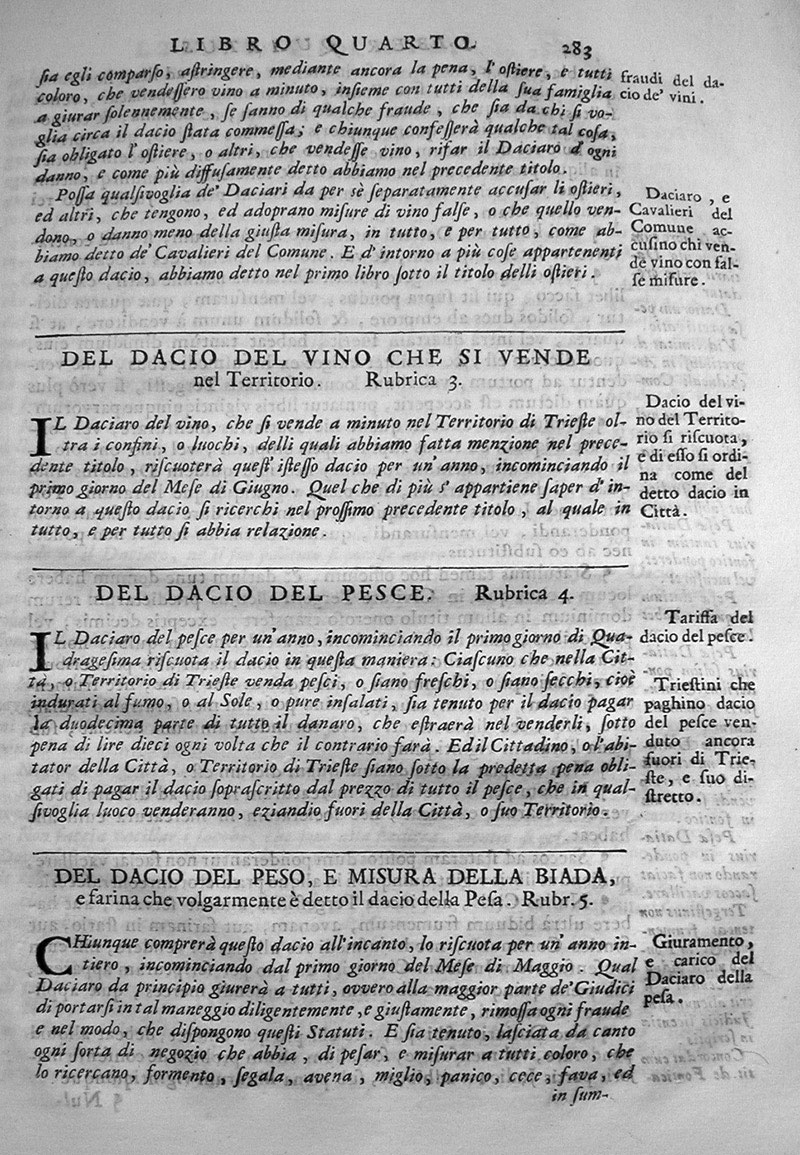 LIBRO QUARTO. 283
ſia egli comparſo, aſtringere, mediante ancora la pena, l'oſtiere, e tutti
coloro, che vendeſſero vino a minuto, inſieme con tutti della ſua famiglia
a giurar ſolennemente, ſe ſanno di qualche fraude, che ſia da chi ſi vo-
glia circa il dacio ſtata commeſſa; e chiunque confeſſerà qualche tal coſa,
ſia obligato l'oſtiere, o altri, che vendeſſe vino, rifar il Daciaro d'ogni
danno, e come più diffuſamente detto abbiamo nel precedente titolo.
fraudi del da-
cio de' vini.
Poſſa qualſivoglia de' Daciari da per sè ſeparatamente accuſar li oſtieri,
ed altri, che tengono, ed adoprano miſure di vino falſe, o che quello ven-
dono, o danno meno della giuſta miſura, in tutto, e per tutto, come ab-
biamo detto de' Cavalieri del Comune. E d'intorno a più coſe appartenenti
a queſto dacio, abbiamo detto nel primo libro ſotto il titolo delli oſtieri.
Daciaro, e
Cavalieri del
Comune ac-
cuſino chi ven-
de vino con fal-
ſe miſure.
DEL DACIO DEL VINO CHE SI VENDE
nel Territorio. Rubrica 3.
IL Daciaro del vino, che ſi vende a minuto nel Territorio di Trieſte ol-
tra i confini, o luochi, delli quali abbiamo fatta menzione nel prece-
dente titolo, riſcuoterà queſt'iſteſſo dacio per un'anno, incominciando il
primo giorno del Meſe di Giugno. Quel che di più s'appartiene ſaper d'in-
torno a queſto dacio ſi ricerchi nel proſſimo precedente titolo, al quale in
tutto, e per tutto ſi abbia relazione.
Dacio del vi-
no del Territo-
rio ſi riſcuota,
e di eſſo ſi ordi-
na come del
detto dacio in
Città.
DEL DACIO DEL PESCE. Rubrica 4.
IL Daciaro del peſce per un'anno, incominciando il primo giorno di Qua-
drageſima riſcuota il dacio in queſta maniera: Ciaſcuno che nella Cit-
tà, o Territorio di Trieſte venda peſci, o ſiano freſchi, o ſiano ſecchi, cioè
indurati al fumo, o al Sole, o pure inſalati, ſia tenuto per il dacio pagar
la duodecima parte di tutto il danaro, che eſtraerà nel venderli, ſotto
pena di lire dieci ogni volta che il contrario farà. Ed il Cittadino, o l'abi-
tator della Città, o Territorio di Trieſte ſiano ſotto la predetta pena obli-
gati di pagar il dacio ſopraſcritto dal prezzo di tutto il peſce, che in qual-
ſivoglia luoco venderanno, eziandio fuori della Città, o ſuo Territorio.
Tariffa del
dacio del peſce.
Trieſtini che
paghino dacio
del peſce ven-
duto ancora
fuori di Trie-
ſte, e ſuo di-
ſtretto.
DEL DACIO DEL PESO, E MISURA DELLA BIADA,
e farina che volgarmente è detto il dacio della Peſa. Rubr. 5.
CHiunque comprerà queſto dacio all'incanto, lo riſcuota per un'anno in-
tiero, incominciando dal primo giorno del Meſe di Maggio. Qual
Daciaro da principio giurerà a tutti, ovvero alla maggior parte de' Giudici
di portarſi in tal maneggio diligentemente, e giuſtamente, rimoſſa ogni fraude
e nel modo, che diſpongono queſti Statuti. E ſia tenuto, laſciata da canto
ogni ſorta di negozio che abbia, di peſar, e miſurar a tutti coloro, che
lo ricercano, formento, ſegala, avena, miglio, panico, cece, fava, ed
in ſum-
Giuramento,
e carico del
Daciaro della
peſa.